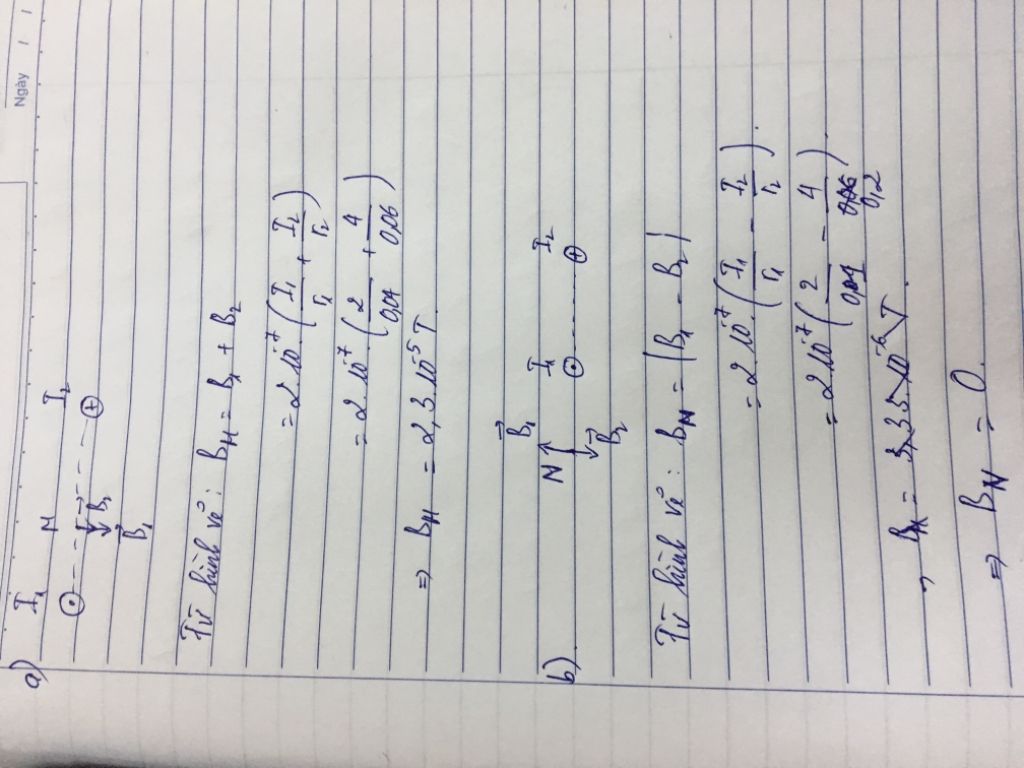 Ngày / /
a) I₁ M I₂
B⃗₂
B⃗₁
Từ hình vẽ : B_M = B₁ + B₂
= 2.10⁻⁷ ( I₁/r₁ + I₂/r₂ )
= 2.10⁻⁷ ( 2/0,04 + 4/0,06 )
=> B_M = 2,3.10⁻⁵ T.
B⃗₁ I₁ I₂
b) N
B⃗₂
Từ hình vẽ : B_N = |B₁ - B₂|
= 2.10⁻⁷ ( I₁/r₁ - I₂/r₂ ).
= 2.10⁻⁷ ( 2/0,04 - 4/0,06 )
0,2
B_N = 3,35.10⁻⁶ T
=> B_N = 0.